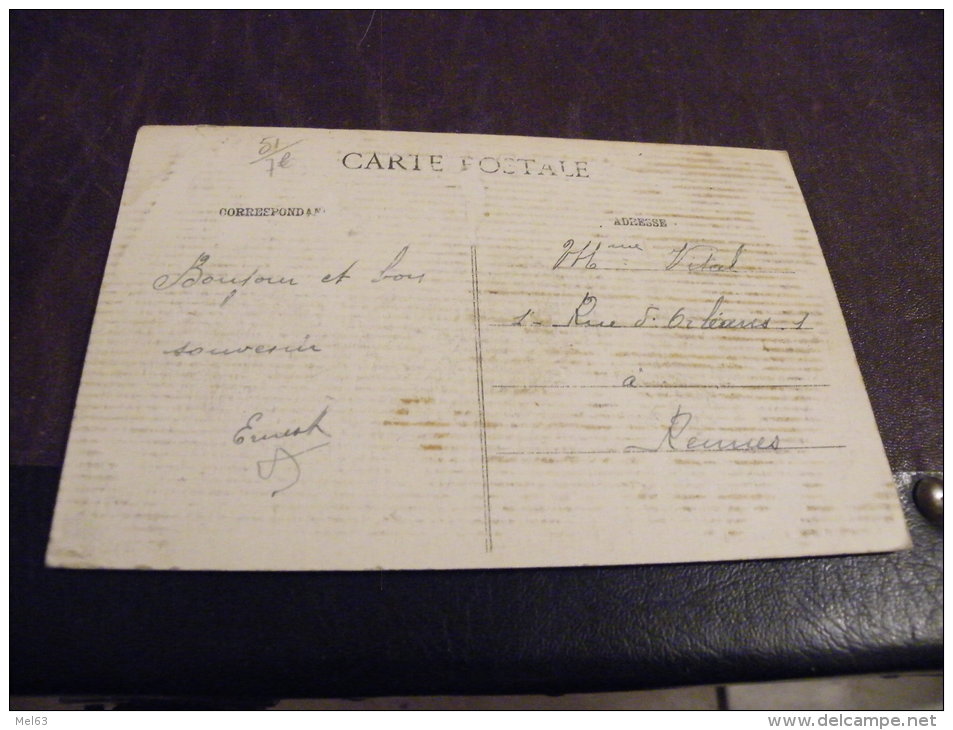 51/7e
CARTE POSTALE
CORRESPONDAN
ADRESSE
Bonjour et bon
souvenir
Ernest
Mme Vital
1 - Rue d'Orléans - 1
à
Rennes
Mel63
www.delcampe.net